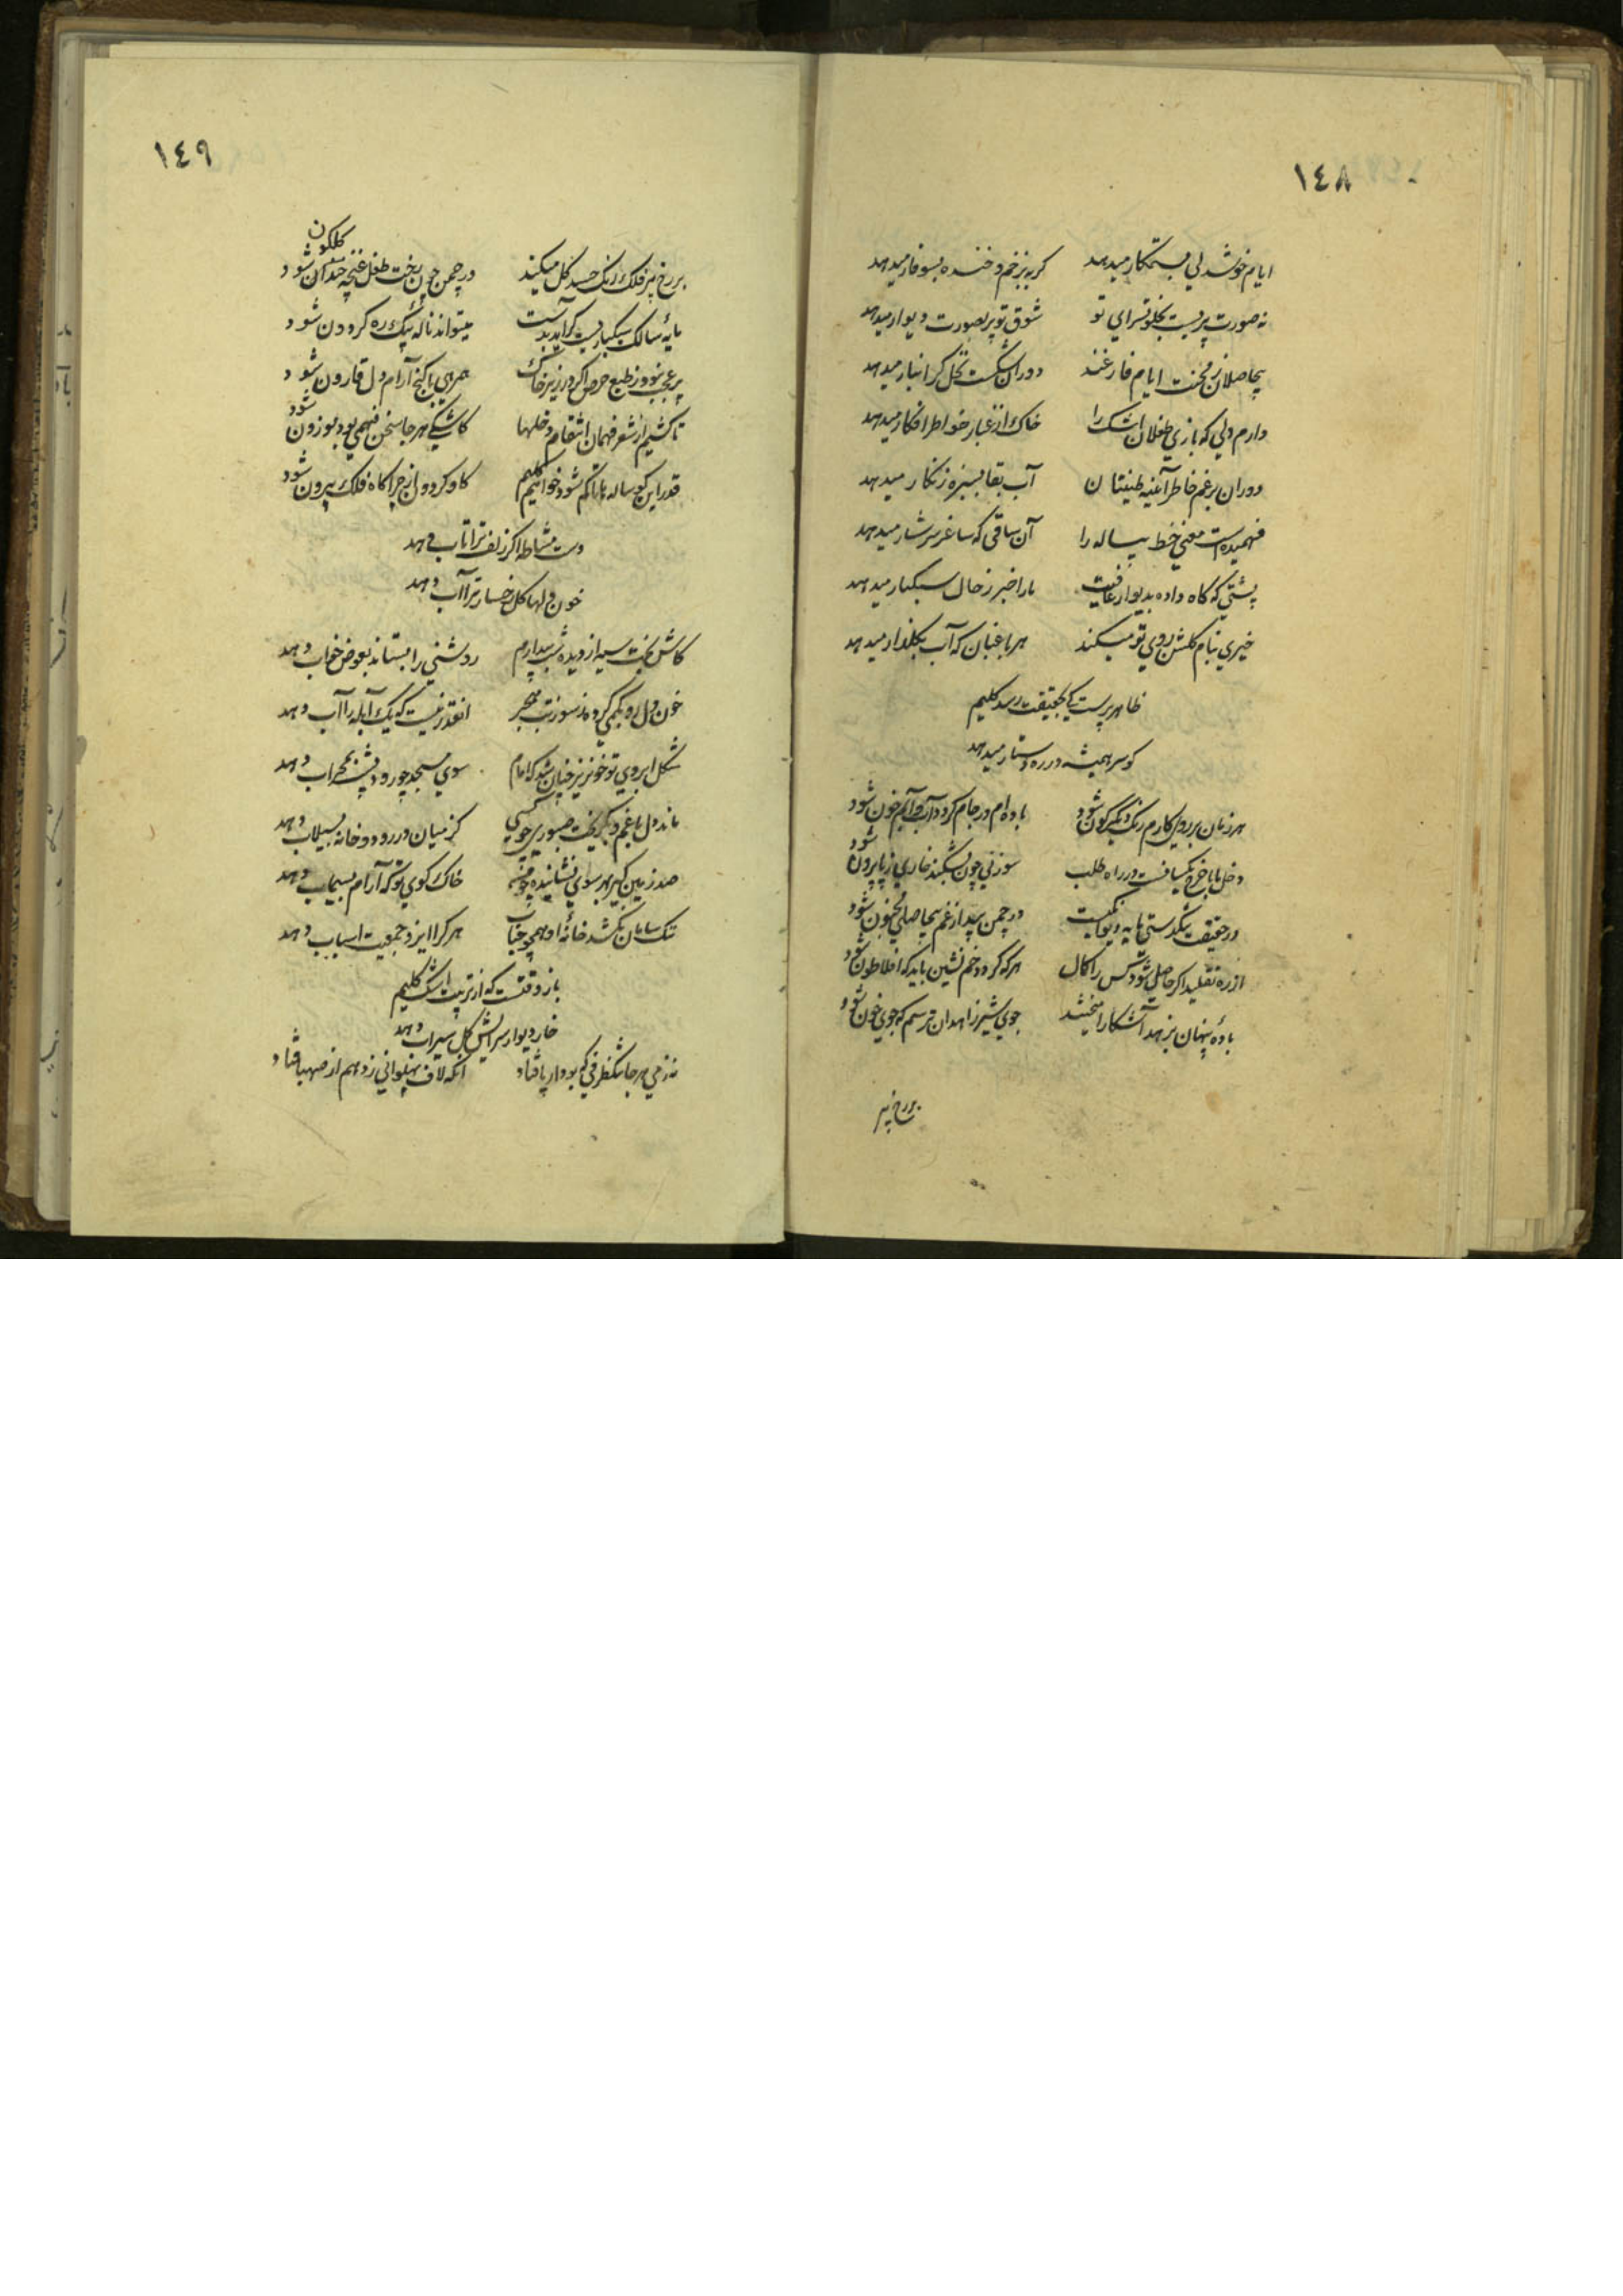 ١٤٨
ایام خوشدلی بستمکار میدهد کریه بزخم و خنده بسوفار میدهد
نه صورت پریست بخلوتسرای تو شوق تو پر بصورت دیوار میدهد
بیحاصلان ز محنت ایام فارغند دوران شکست نخل کرانبار میدهد
دارم دلی که بازی طفلان اشک را خاک از غبار خواطر افکار میدهد
دوران برغم خاطر آئینه طینتان آب بقا بسبزه زنکار میدهد
فهمیده است معنی خط پیاله را آن ساقی که ساغر سرشار میدهد
پشتی که کاه داده بدیوار عافیت ما را خبر ز حال سبکبار میدهد
خیری بنام کلشن روی تو میکند هر باغبان که آب بکلزار میدهد
ظاهر پرست کی بحقیقت رسد کلیم
کو سر همیشه در ره دستار میدهد
هر زمان بر روی کارم رنک دیکرکون شود باده ام در جام کردد آب و آبم خون شود
دخل ما با خرج یکسانست در راه طلب سوزنی چون بشکند خاری ز پا بیرون شود
در حقیقت تنکدستی مایه دیوانکیست در چمن بید از غم بیحاصلی مجنون شود
از ره تقلید اکر حاصل شود کس را کمال هر که کردد خم نشین باید که افلاطون شود
باده پنهان بزهد آشکارا میخشد جوی شیر زاهدان ترسم که جوی خون شود
بر رخ پیر
١٤٩
بر رخ پیر فلک رنک حسد کل میکند در چمن چون بخت طفل غنچه خندان شود
کلکون
پایه سالک سبکباریست کر آید بدست میتواند ناله پیک ره کردون شود
پر عجب نبود ز طبع حرص اکر در زیر خاک همرهی با کنج آرام دل قارون شود
تا کشیم از شعر فهمان انتقام دخلها کاشکی هر جا سخن فهمی بود موزون شود
قدر این کوساله ها تا کم شود خواهم کلیم کاو کردون از چراکاه فلک بیرون شود
دست مشاطه اکر زلف ترا تاب دهد
خون دلها کل رخسار ترا آب دهد
کاش بخت سیه از دیده شب بیدارم روشنی را بستاند بعوض خواب دهد
خون دل رو بکمی کرده ز سوز تب هجر انقدر نیست که یک آبله را آب دهد
شکل ابروی تو خونریز چنان شد که امام سوی مسجد چو رود پشت بمحراب دهد
ماند دل با غم و بکریخت صبوری چو کسی کز میان در رود و خانه بسیلاب دهد
صد زمین کیر بهر سوی نشانیده چو من خاک کوی تو که آرام بسیماب دهد
تنک سامان نکشد خانه او همچو حباب هر کرا ایزد جمعیت اسباب دهد
باز وقتست که از تربیت اشک کلیم
خار دیوار سرایش کل سیراب دهد
نه زمی هر جا تنک ظرفی که بود از پا فتاد انکه لاف پهلوانی زد هم از صهبا فتاد